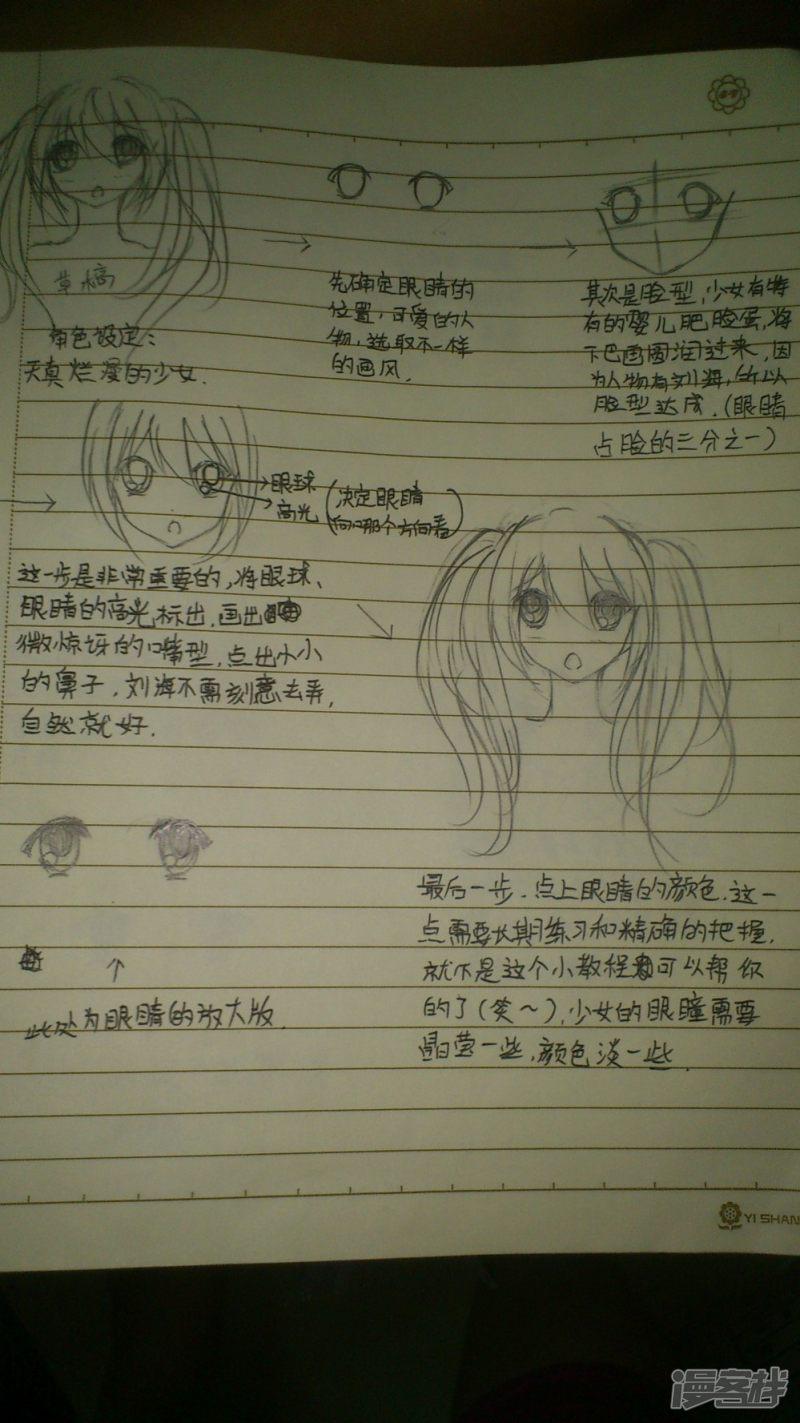 草稿
角色设定：
天真烂漫的少女.
先确定眼睛的
位置，可爱的人
物，选取不一样
的画风.
其次是脸型，少女有特
有的婴儿肥脸蛋，将
下巴画圆润过来，因
为人物有刘海，所以
脸型达成.（眼睛
占脸的三分之一）
眼球
高光
（决定眼睛
向哪个方向看）
这一步是非常重要的，将眼球、
眼睛的高光标出，画出
微惊讶的嘴型，点出小小
的鼻子，刘海不需刻意去弄，
自然就好.
最后一步.点上眼睛的颜色.这一
点需要长期练习和精确的把握，
就不是这个小教程可以帮你
的了（笑～），少女的眼瞳需要
晶莹一些，颜色淡一些
此处为眼睛的放大版.
YI SHAN
漫客栈